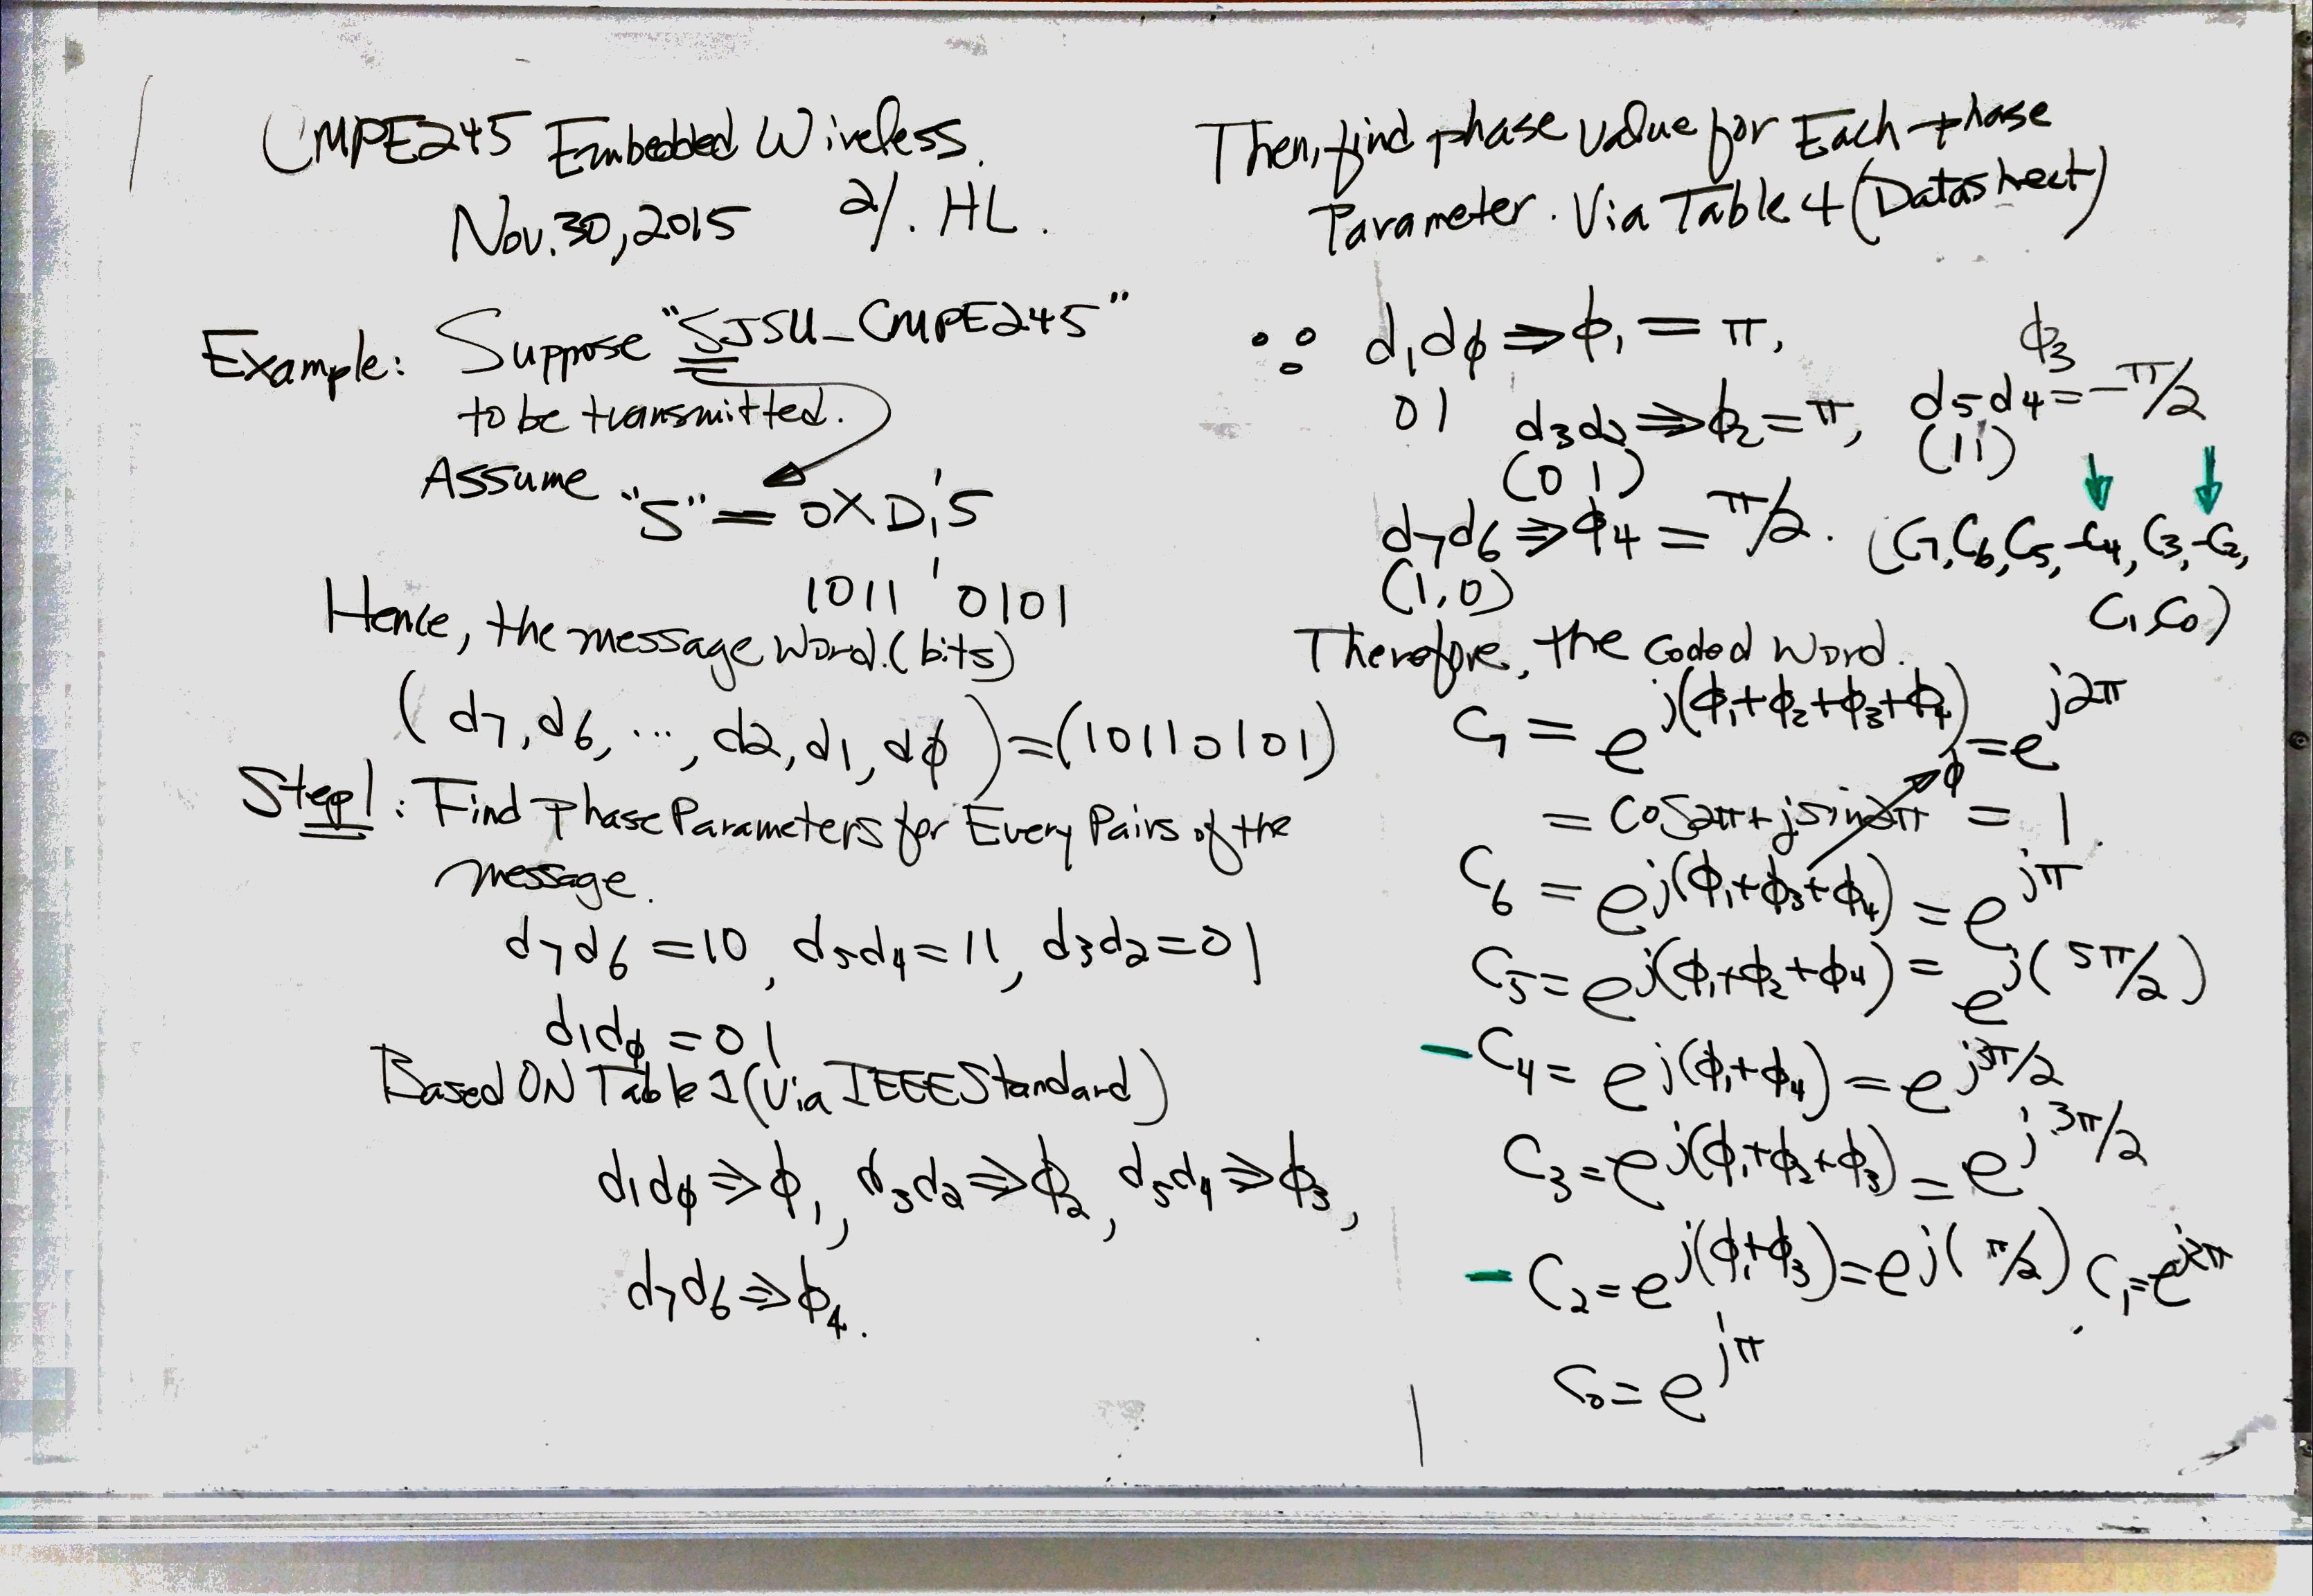 CMPE245 Embedded Wireless.
Nov. 30, 2015 2/. HL.
Example: Suppose "SJSU_CMPE245"
to be transmitted.
Assume "S" = 0XD'5
1011 ' 0101
Hence, the message word. (bits)
(d7, d6, ..., d2, d1, dφ) = (10110101)
Step1: Find Phase Parameters for Every Pairs of the
message.
d7d6 = 10, d5d4 = 11, d3d2 = 01
d1dφ = 01
Based ON Table 1 (Via IEEE Standard)
d1dφ ⇒ φ1, d3d2 ⇒ φ2, d5d4 ⇒ φ3,
d7d6 ⇒ φ4.
Then, find phase value for Each phase
Parameter. Via Table 4 (Datasheet)
∵ d1dφ ⇒ φ1 = π,
01 d3d2 ⇒ φ2 = π, φ3 d5d4 = -π/2
(01) (11)
d7d6 ⇒ φ4 = π/2. (C7, C6, C5, -C4, C3, -C2,
(1,0) C1, C0)
Therefore, the Coded Word.
C7 = e^j(φ1+φ2+φ3+φ4) = e^j2π
= cos2π + jsin2π φ = 1.
C6 = e^j(φ1+φ3+φ4) = e^jπ
C5 = e^j(φ1+φ2+φ4) = e^j(5π/2)
-C4 = e^j(φ1+φ4) = e^j3π/2
C3 = e^j(φ1+φ2+φ3) = e^j3π/2
-C2 = e^j(φ1+φ3) = e^j(π/2). C1 = e^j2π
C0 = e^jπ